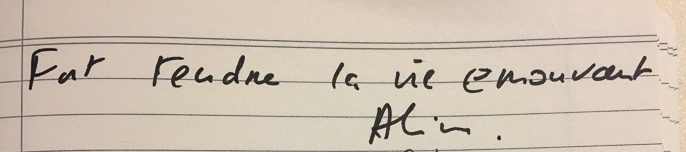 Fat rendre la vie emouvant
Alin.